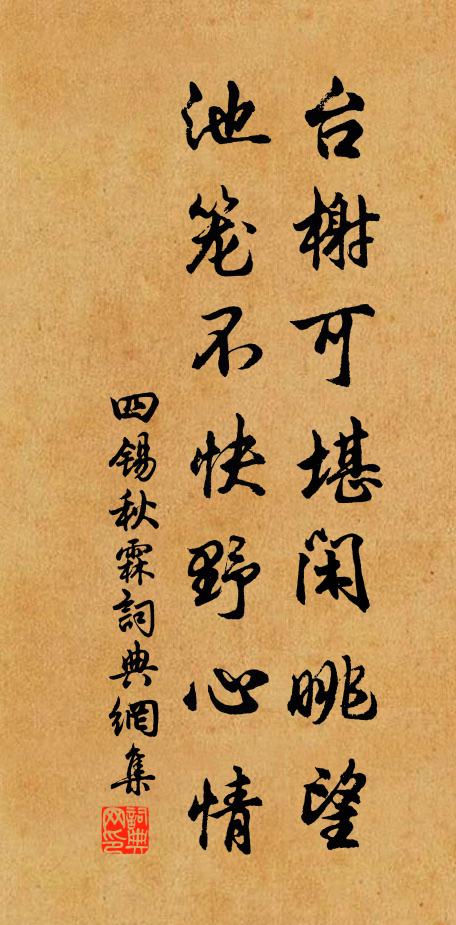 台榭可堪闲眺望
池笼不快野心情
四锡秋霖詞典網集
詞典
网印